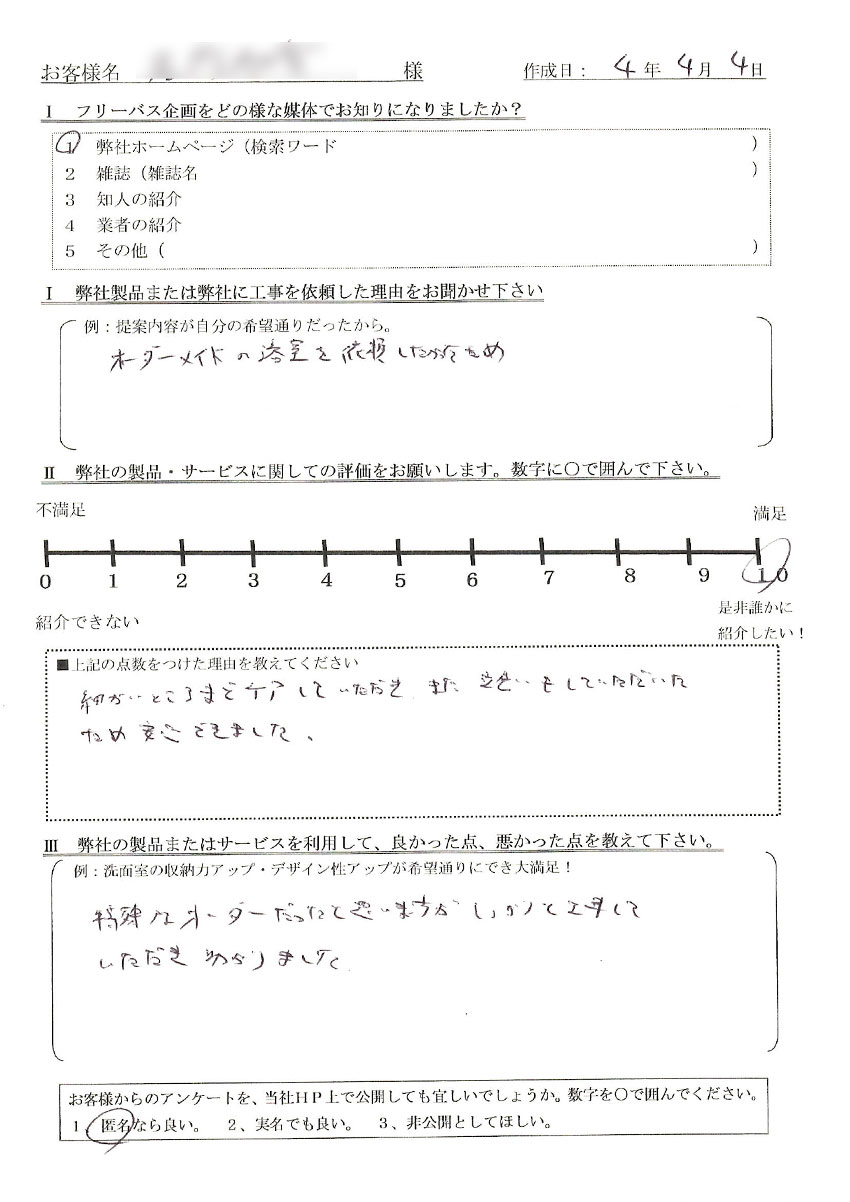 お客様名 様 作成日： 4年 4月 4日
Ⅰ フリーバス企画をどの様な媒体でお知りになりましたか？
1 弊社ホームページ（検索ワード ）
2 雑誌（雑誌名 ）
3 知人の紹介
4 業者の紹介
5 その他（ ）
Ⅰ 弊社製品または弊社に工事を依頼した理由をお聞かせ下さい
例：提案内容が自分の希望通りだったから。
オーダーメイドの浴室を依頼したかったため
Ⅱ 弊社の製品・サービスに関しての評価をお願いします。数字に〇で囲んで下さい。
不満足 満足
0 1 2 3 4 5 6 7 8 9 10
紹介できない 是非誰かに
紹介したい！
■上記の点数をつけた理由を教えてください
細かいところまでケアしていただき また 立会いをしていただいた
ため 安心できました。
Ⅲ 弊社の製品またはサービスを利用して、良かった点、悪かった点を教えて下さい。
例：洗面室の収納力アップ・デザイン性アップが希望通りにでき大満足！
特殊なオーダーだったと思いますが しっかりと工事して
いただき 助かりました
お客様からのアンケートを、当社ＨＰ上で公開しても宜しいでしょうか。数字を〇で囲んでください。
1、匿名なら良い。 2、実名でも良い。 3、非公開としてほしい。